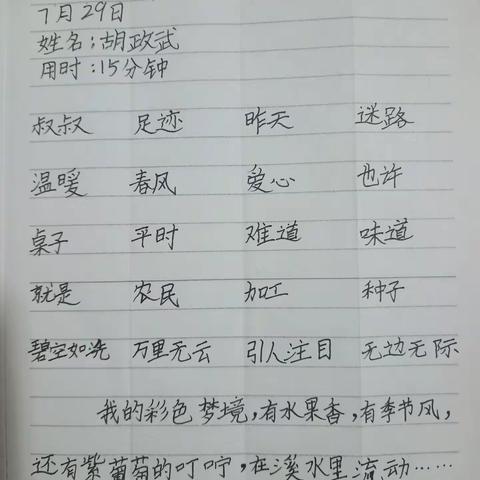 7月29日
姓名：胡政武
用时：15分钟
叔叔 足迹 昨天 迷路
温暖 春风 爱心 也许
桌子 平时 难道 味道
就是 农民 加工 种子
碧空如洗 万里无云 引人注目 无边无际
我的彩色梦境，有水果香，有季节风，
还有紫葡萄的叮咛，在溪水里流动……